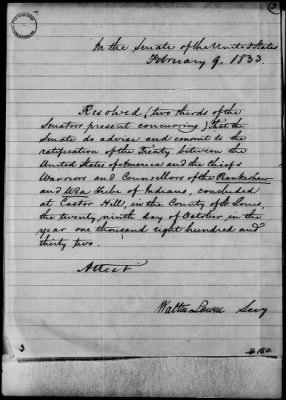 2
In the Senate of the United States
February 9, 1833.
Resolved (two thirds of the
Senators present concurring) That the
Senate do advise and consent to the
ratification of the Treaty between the
United States of America and the Chiefs
Warriors and Counsellors of the Pankeshaw
and Wea tribe of Indians, concluded
at Castor Hill, in the County of St Louis,
the twenty ninth day of October in the
year one thousand eight hundred and
thirty two.
Attest
Walter Lowrie Secy